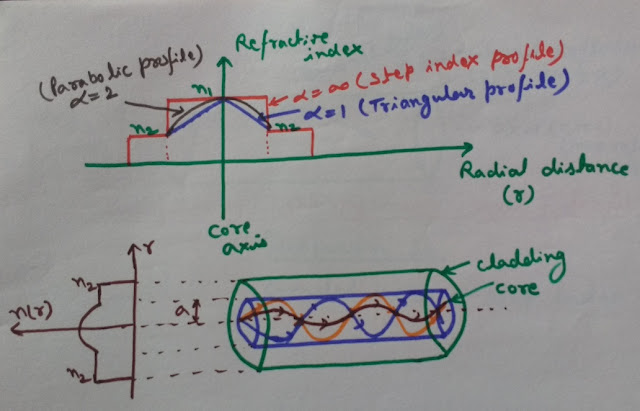 Refractive
index
(Parabolic profile)
α=2
n₁
α=∞ (Step index profile)
α=1 (Triangular profile)
n₂
n₂
Radial distance
(r)
core
axis
r
cladding
core
n₂
n(r)
a
n₂